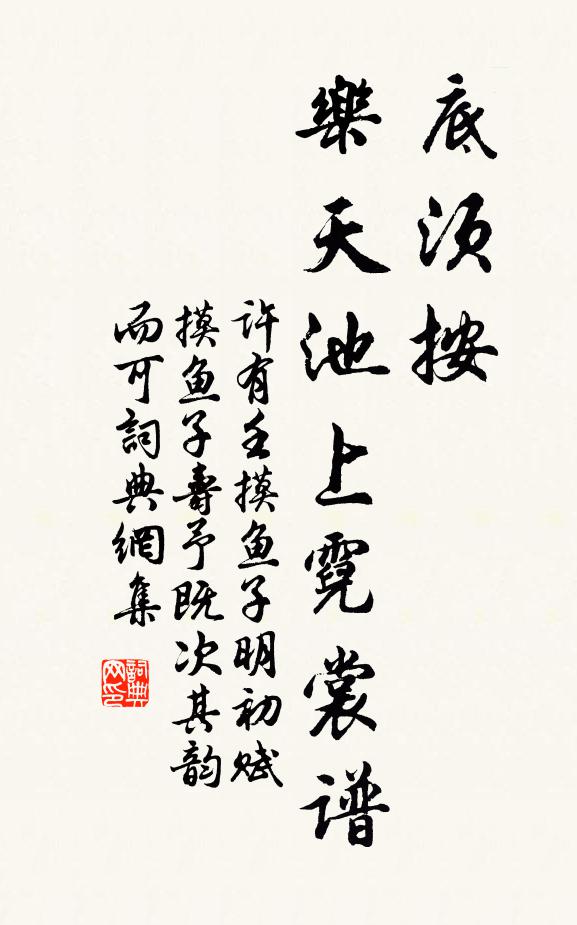 底须按
樂天池上霓裳譜
许有壬摸鱼子明初赋
摸鱼子壽予既次其韵
而可詞典網集
詞典网印